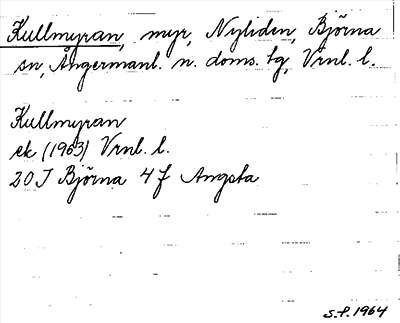 Kullmyran, myr, Nyliden, Björna
sn, Ångermanl. n. doms. bg, Vrnl. l.
Kullmyran
ek (1963) Vrnl. l.
20 I Björna 4 f Angsta
S.F. 1964